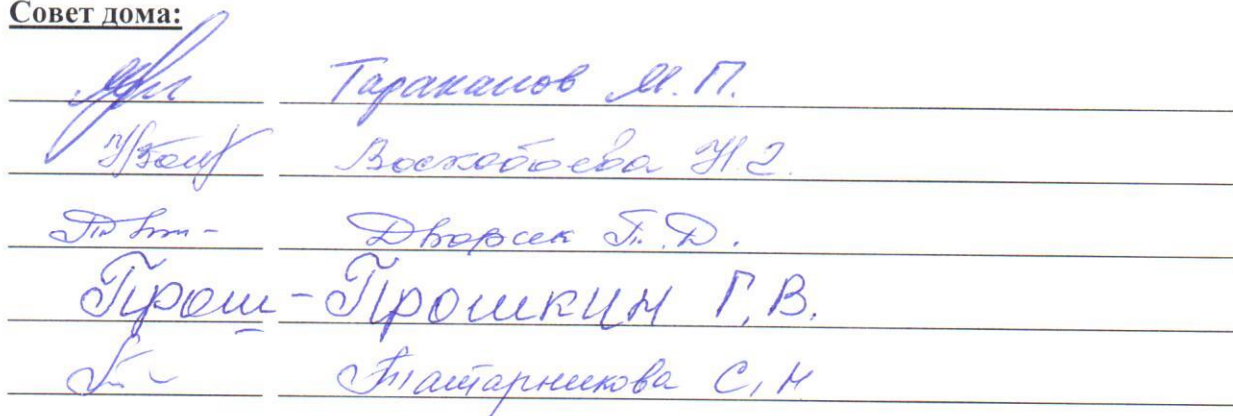 Совет дома:
Тараканов М.П.
Воскобоева Н.Г.
Дворсек Т.Д.
Прош - Прошкин Г.В.
Татарникова С.Н